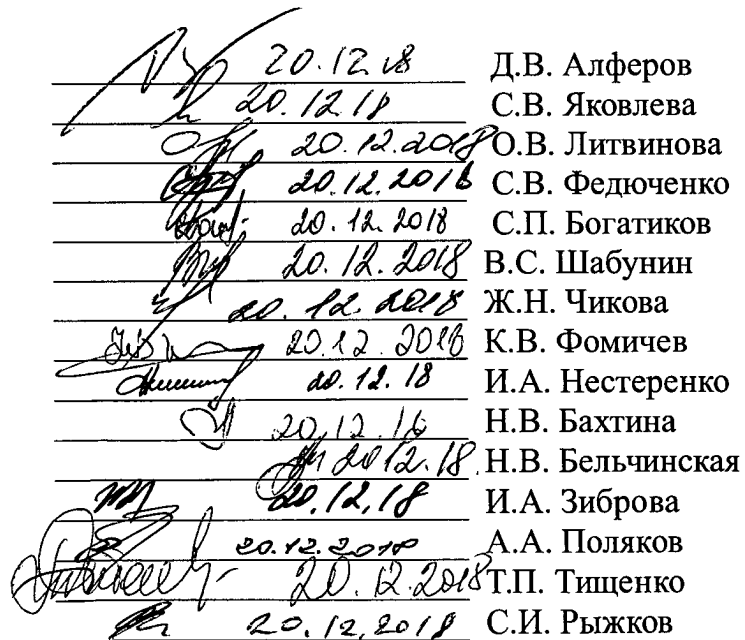 20.12.18 Д.В. Алферов
20.12.18 С.В. Яковлева
20.12.2018 О.В. Литвинова
20.12.2018 С.В. Федюченко
20.12.2018 С.П. Богатиков
20.12.2018 В.С. Шабунин
20.12.2018 Ж.Н. Чикова
20.12.2018 К.В. Фомичев
20.12.18 И.А. Нестеренко
20.12.18 Н.В. Бахтина
20.12.18. Н.В. Бельчинская
20.12.18 И.А. Зиброва
20.12.2018 А.А. Поляков
20.12.2018 Т.П. Тищенко
20.12.2018 С.И. Рыжков